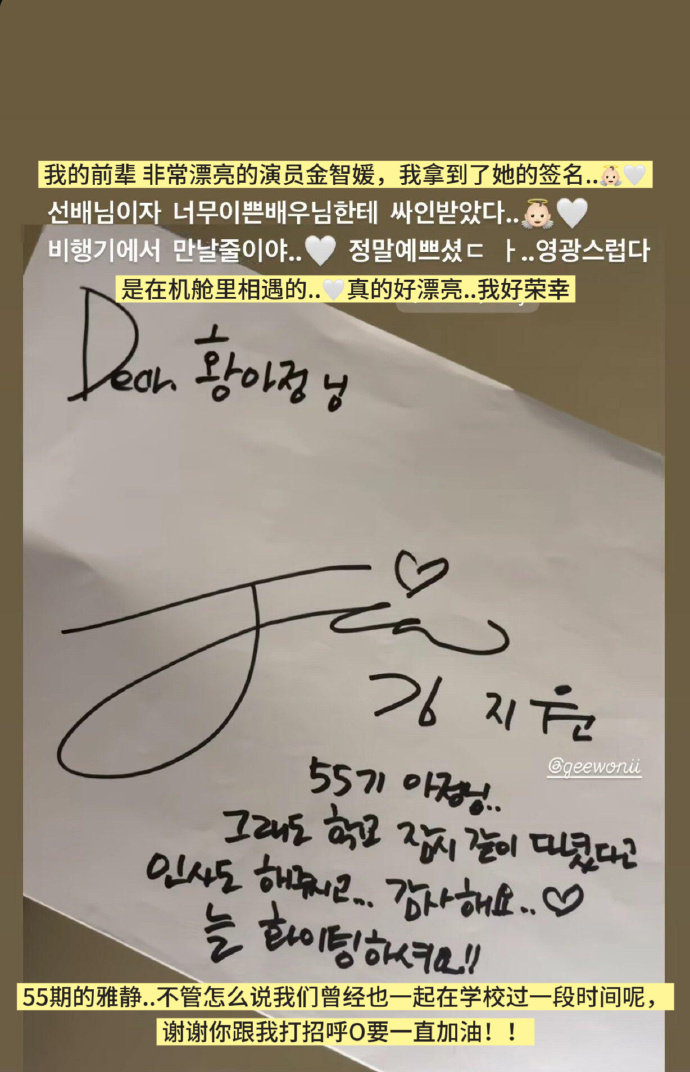 我的前辈 非常漂亮的演员金智媛，我拿到了她的签名..👼🏻🤍
선배님이자 너무이쁜배우님한테 싸인받았다..👼🏻🤍
비행기에서 만날줄이야..🤍 정말예쁘셨ㄷ ㅏ..영광스럽다
是在机舱里相遇的..🤍真的好漂亮..我好荣幸
Dear. 황아정 님
김 지원
@geewonii
55기 아정님..
그래도 학교 잠시 같이 다녔다고
인사도 해주시고... 감사해요..♡
늘 화이팅하셔요!!
55期的雅静..不管怎么说我们曾经也一起在学校过一段时间呢，
谢谢你跟我打招呼O要一直加油！！